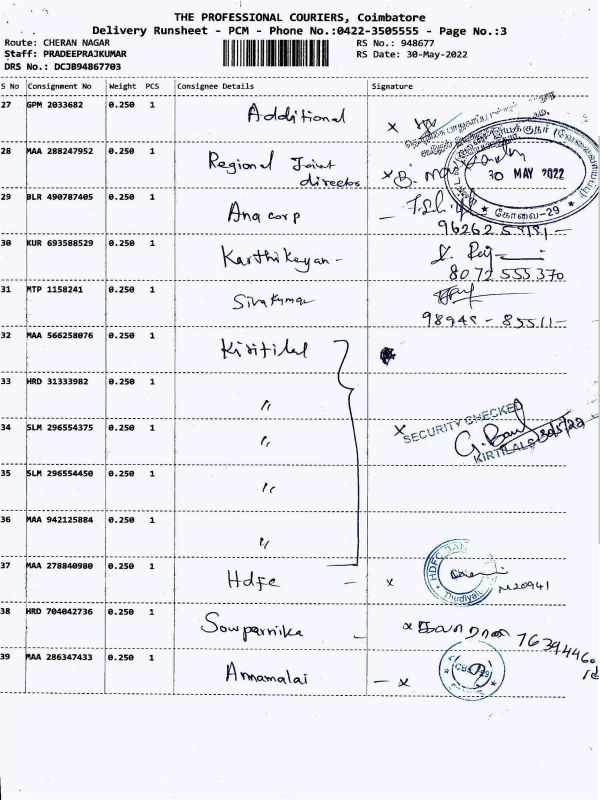 THE PROFESSIONAL COURIERS, Coimbatore
Delivery Runsheet - PCM - Phone No.:0422-3505555 - Page No.:3
Route: CHERAN NAGAR RS No.: 948677
Staff: PRADEEPRAJKUMAR RS Date: 30-May-2022
DRS No.: DCJB94867703
S No Consignment No Weight PCS Consignee Details Signature
27 GPM 2033682 0.250 1 Additional x
28 MAA 288247952 0.250 1 Regional Joint director x
30 MAY 2022
★ கோவை-29 ★
29 BLR 490787405 0.250 1 Ana corp —
96262
30 KUR 693588529 0.250 1 Karthikeyan -
8072 555 370
31 MTP 1158241 0.250 1 Sivakumar
98948 - 85511 -
32 MAA 566258076 0.250 1 Kiritilal
33 HRD 31333982 0.250 1 〃
34 SLM 296554375 0.250 1 〃 x
SECURITY CHECKED
KIRTILALS 30/5/22
35 SLM 296554450 0.250 1 〃
36 MAA 942125884 0.250 1 〃
37 MAA 278840980 0.250 1 Hdfc — x
HDFC BANK
Thudiyalur
N20941
38 HRD 704042736 0.250 1 Sowparnika — x
7639446
39 MAA 286347433 0.250 1 Annamalai — x
CBE-29